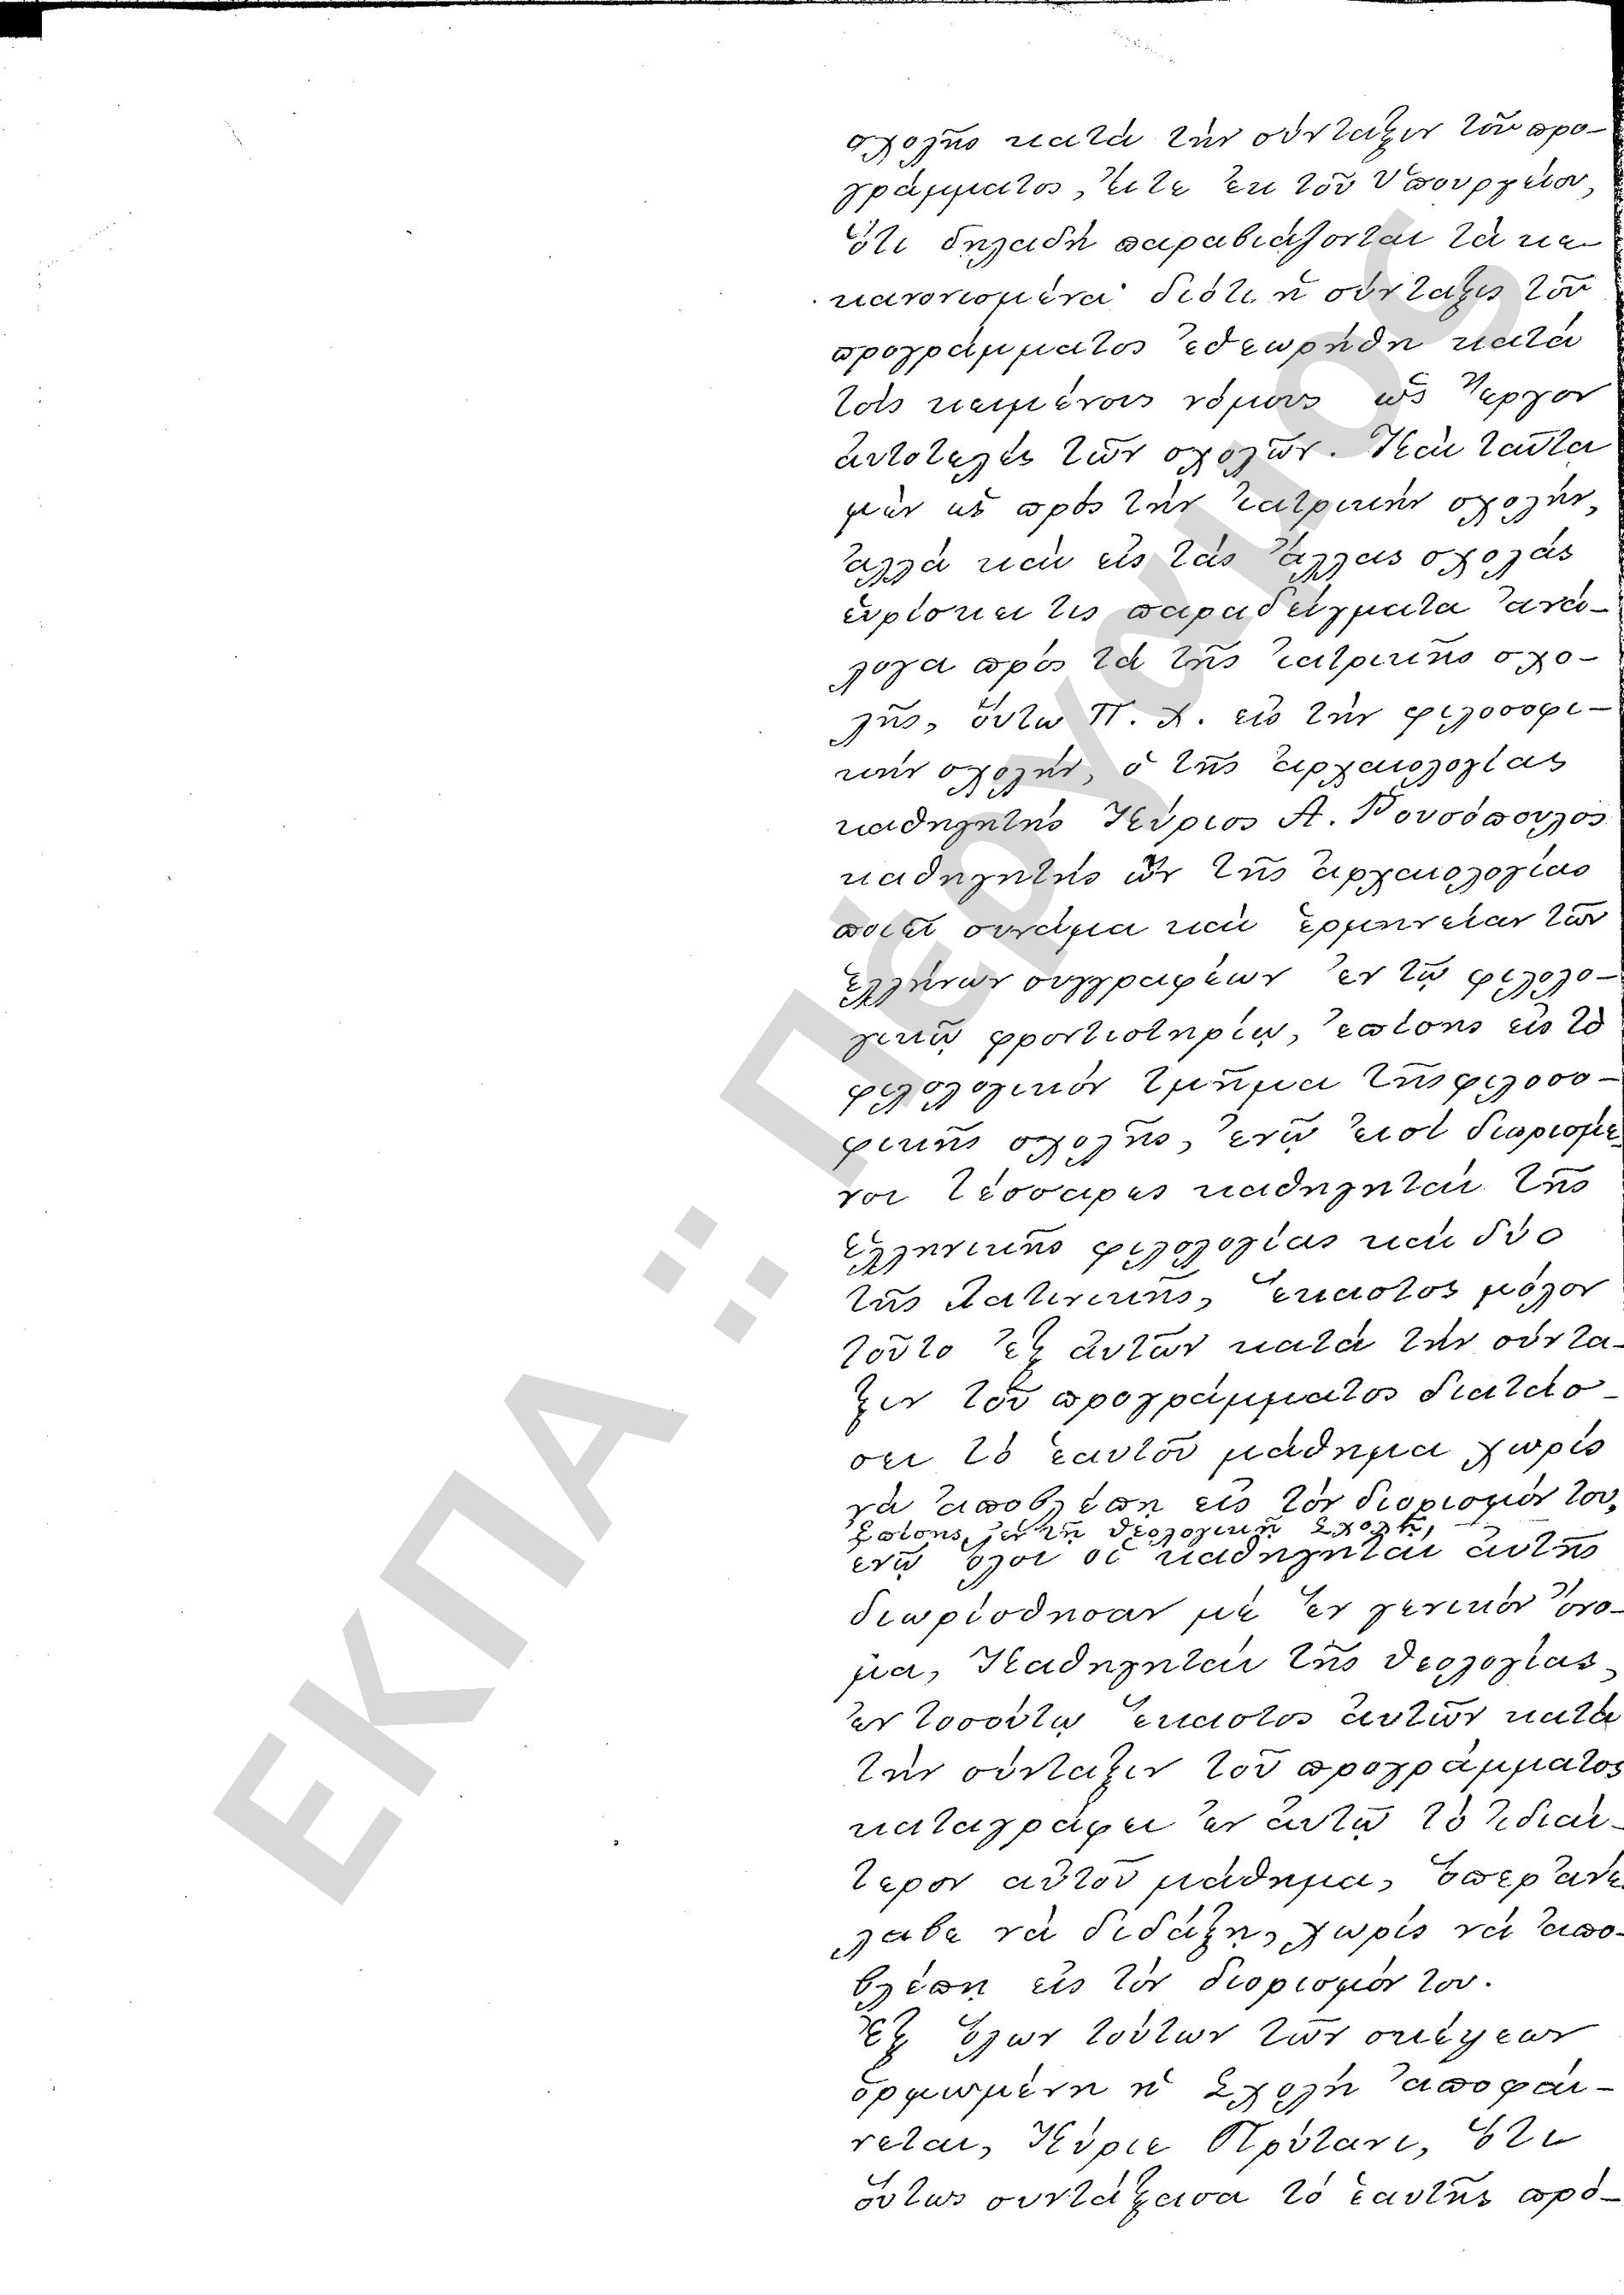 σχολῆς κατὰ τὴν σύνταξιν τοῦ προ-
γράμματος, εἴτε ἐκ τοῦ Ὑπουργείου,
ὅτι δηλαδὴ παραβιάζονται τὰ κε-
κανονισμένα· διότι ἡ σύνταξις τοῦ
προγράμματος ἐθεωρήθη κατὰ
τοὺς κειμένους νόμους ὡς ἔργον
αὐτοτελὲς τῶν σχολῶν. Καὶ ταῦτα
μὲν ὡς πρὸς τὴν ἰατρικὴν σχολήν,
ἀλλὰ καὶ εἰς τὰς ἄλλας σχολὰς
εὑρίσκει τις παραδείγματα ἀνά-
λογα πρὸς τὰ τῆς ἰατρικῆς σχο-
λῆς, οὕτω π. χ. εἰς τὴν φιλοσοφι-
κὴν σχολήν, ὁ τῆς ἀρχαιολογίας
καθηγητὴς Κύριος Α. Ῥουσόπουλος
καθηγητὴς ὢν τῆς ἀρχαιολογίας
ποιεῖ συνάμα καὶ ἑρμηνείαν τῶν
ἑλλήνων συγγραφέων ἐν τῷ φιλολο-
γικῷ φροντιστηρίῳ, ἐπίσης εἰς τὸ
φιλολογικὸν τμῆμα τῆς φιλοσο-
φικῆς σχολῆς, ἐνῷ εἰσὶ διωρισμέ
νοι τέσσαρες καθηγηταὶ τῆς
ἑλληνικῆς φιλολογίας καὶ δύο
τῆς Λατινικῆς, ἕκαστος μόλον
τοῦτο ἐξ αὐτῶν κατὰ τὴν σύντα-
ξιν τοῦ προγράμματος διατάσ-
σει τὸ ἑαυτοῦ μάθημα χωρὶς
νὰ ἀποβλέπῃ εἰς τὸν διορισμόν του,
ἐπίσης, ἐν τῇ θεολογικῇ Σχολῇ,
ἐνῷ ὅλοι οἱ καθηγηταὶ αὐτῆς
διωρίσθησαν μὲ ἓν γενικὸν ὄνο-
μα, Καθηγηταὶ τῆς θεολογίας,
ἐν τοσούτῳ ἕκαστος αὐτῶν κατὰ
τὴν σύνταξιν τοῦ προγράμματος
καταγράφει ἐν αὐτῷ τὸ ἰδιαί-
τερον αὐτοῦ μάθημα, ὅπερ ἀνέ
λαβε νὰ διδάξῃ, χωρὶς νὰ ἀπο-
βλέπῃ εἰς τὸν διορισμόν του.
Ἐξ ὅλων τούτων τῶν σκέψεων
ὁρμωμένη ἡ Σχολὴ ἀποφαί-
νεται, Κύριε Πρύτανι, ὅτι
οὕτως συντάξασα τὸ ἑαυτῆς πρό-
ΕΚΠΑ :: Πέργαμος